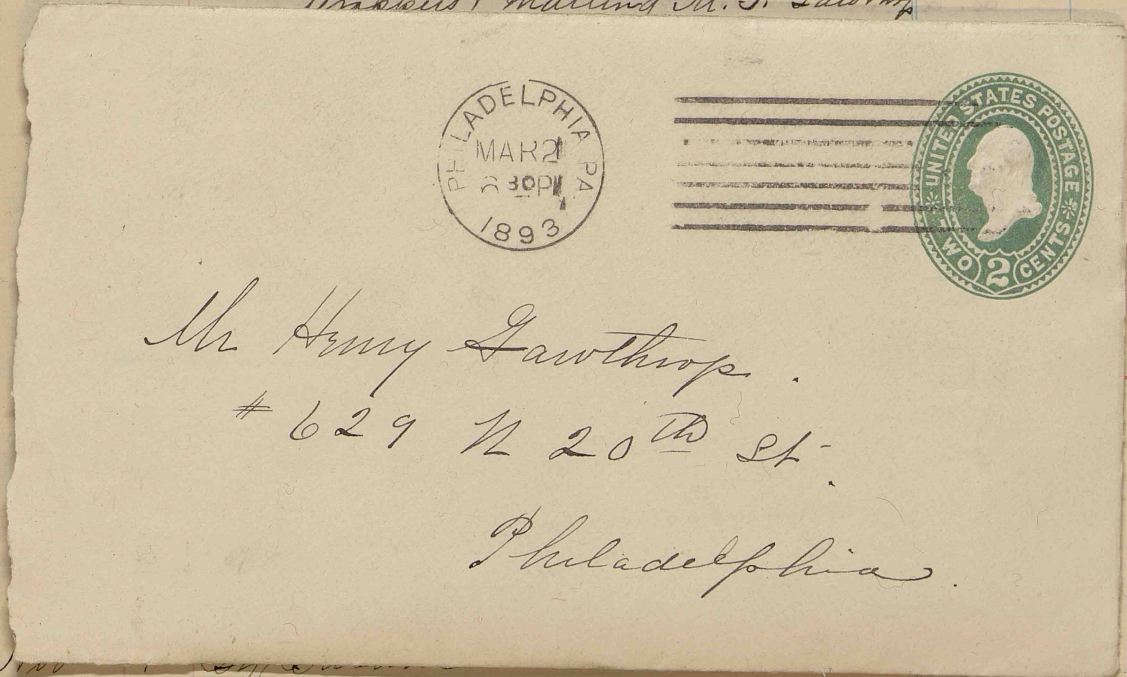 Wrappers & Mailing M. S.
PHILADELPHIA PA
MAR 2
6 30P
1893
UNITED STATES POSTAGE
TWO 2 CENTS
Mr Henry Gawthrop.
# 629 N 20th St.
Philadelphia.